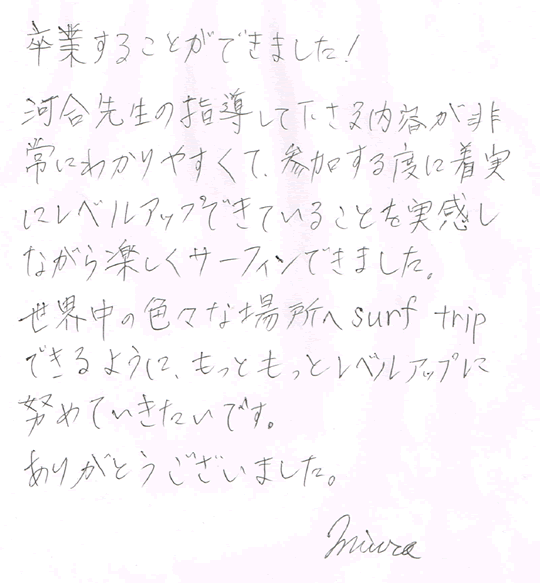 卒業することができました!
河合先生の指導して下さる内容が非
常にわかりやすくて、参加する度に着実
にレベルアップできていることを実感し
ながら楽しくサーフィンできました。
世界中の色々な場所へsurf trip
できるように、もっともっとレベルアップに
努めていきたいです。
ありがとうございました。
Miura